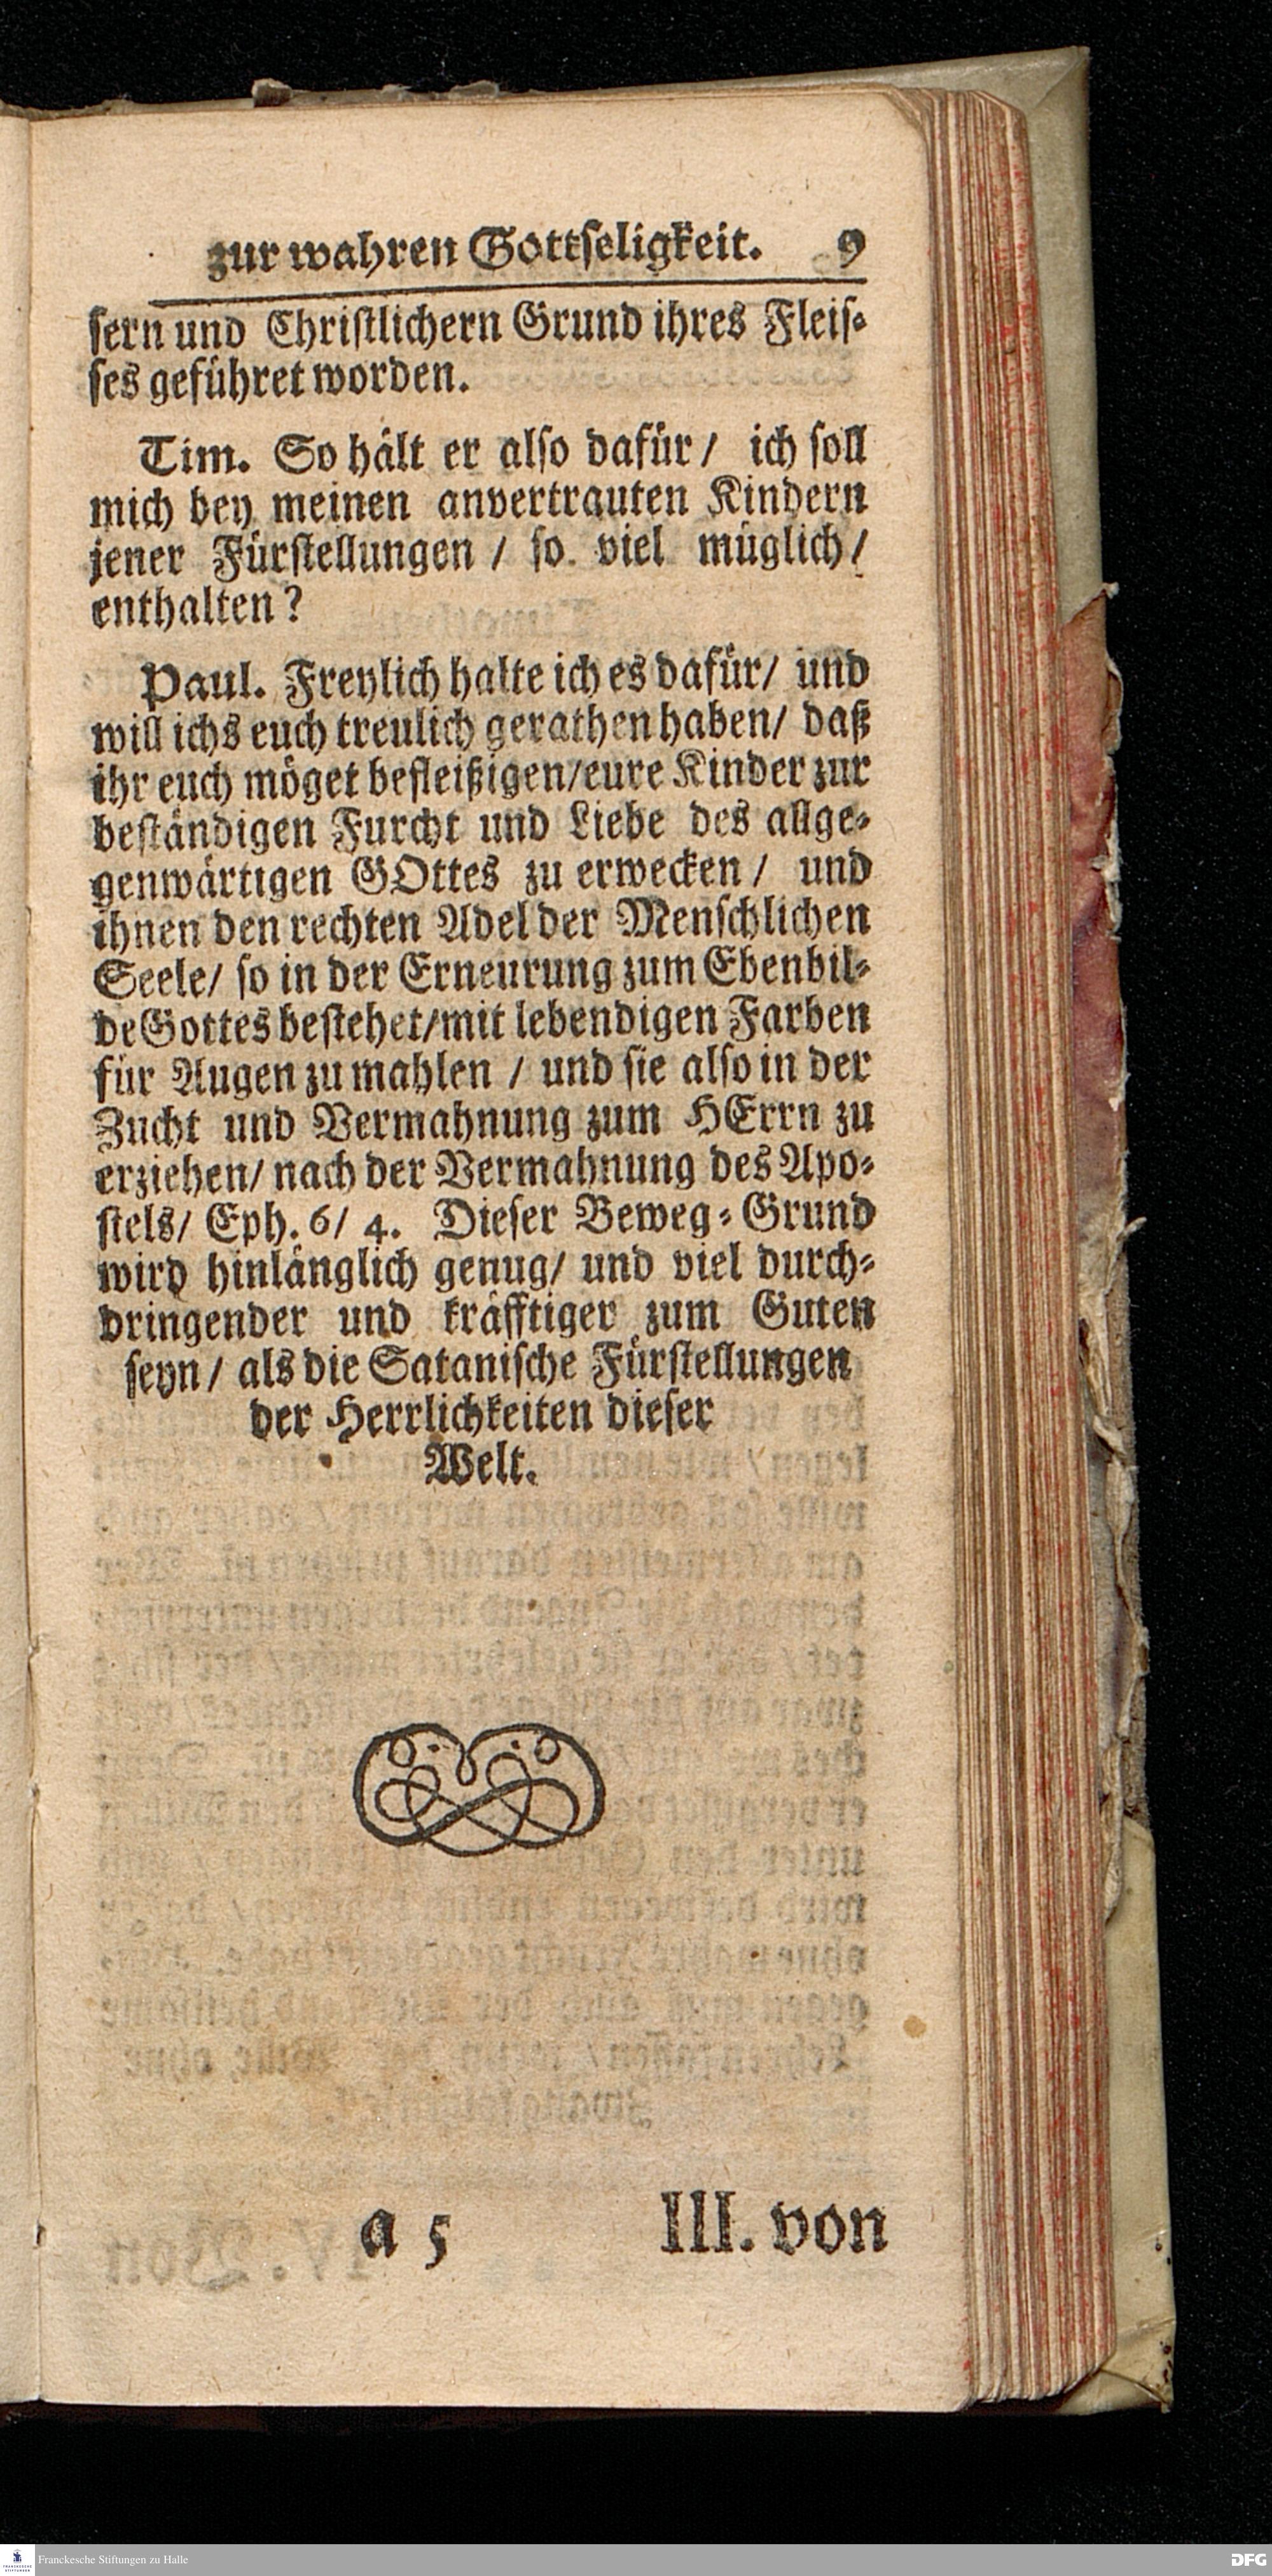 zur wahren Gottseligkeit. 9
sern und Christlichern Grund ihres Fleis-
ses geführet worden.
Tim. So hält er also dafür / ich soll
mich bey meinen anvertrauten Kindern
jener Fürstellungen / so viel müglich /
enthalten?
Paul. Freylich halte ich es dafür / und
will ichs euch treulich gerathen haben / daß
ihr euch möget befleißigen / eure Kinder zur
beständigen Furcht und Liebe des allge-
genwärtigen GOttes zu erwecken / und
ihnen den rechten Adel der Menschlichen
Seele / so in der Erneurung zum Ebenbil-
de Gottes bestehet / mit lebendigen Farben
für Augen zu mahlen / und sie also in der
Zucht und Vermahnung zum HErrn zu
erziehen / nach der Vermahnung des Apo-
stels / Eph. 6 / 4. Dieser Beweg-Grund
wird hinlänglich genug / und viel durch-
dringender und kräfftiger zum Guten
seyn / als die Satanische Fürstellungen
der Herrlichkeiten dieser
Welt.
a 5 III. von
Franckesche Stiftungen zu Halle
DFG